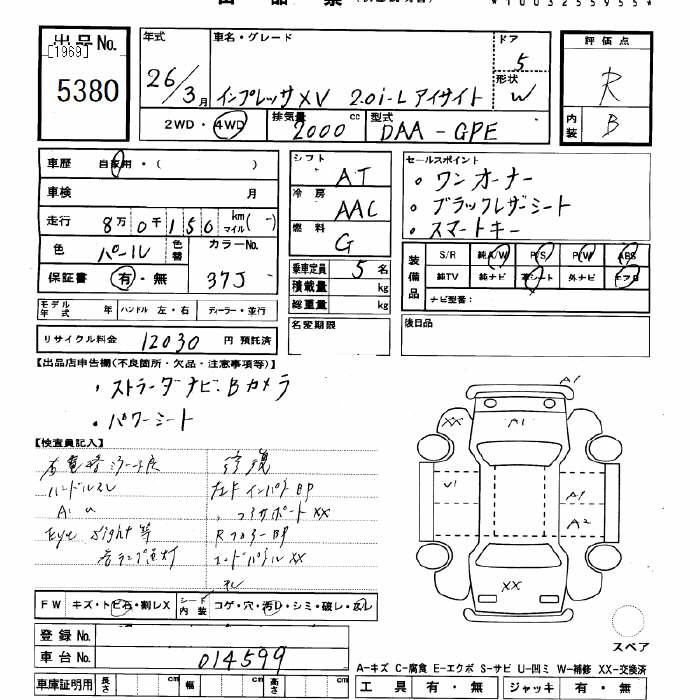 *1003255955*
出品No.
[1969]
5380
年式
26/3月
車名・グレード
インプレッサXV 2.0i-L アイサイト
ドア
5
形状
W
2WD・4WD
排気量
2000 cc
型式
DAA-GPE
評価点
R
内装
B
車歴 自家用・( )
車検 月
走行 8万0千150 km マイル(-)
色 パール 色替 カラーNo.
37J
保証書 有・無
シフト
AT
冷房
AAC
燃料
G
乗車定員 5名
積載量 kg
総重量 kg
名変期限
セールスポイント
・ワンオーナー
・ブラックレザーシート
・スマートキー
装備品
S/R 純A/W P/S P/W ABS
純TV 純ナビ 革シート 外ナビ エアB
ナビ型番:
後日品
モデル年式 年 ハンドル 左・右 ディーラー・並行
リサイクル料金 12030 円 預託済
【出品店申告欄(不良箇所・欠品・注意事項等)】
・ストラーダナビ.Bカメラ
・パワーシート
【検査員記入】
修復
ハンドルスレ
Eye Sight等
エンドパネルXX
A1
XX
A1
U1
A1
A2
XX
FW キズ・トビ石・割レX シート内装 コゲ・穴・汚レ・シミ・破レ・スレ
登録No.
車台No. 014599
スペア
A-キズ C-腐食 E-エクボ S-サビ U-凹ミ W-補修 XX-交換済
車庫証明用 長さ cm 幅 cm 高さ cm
工具 有・無 ジャッキ 有・無